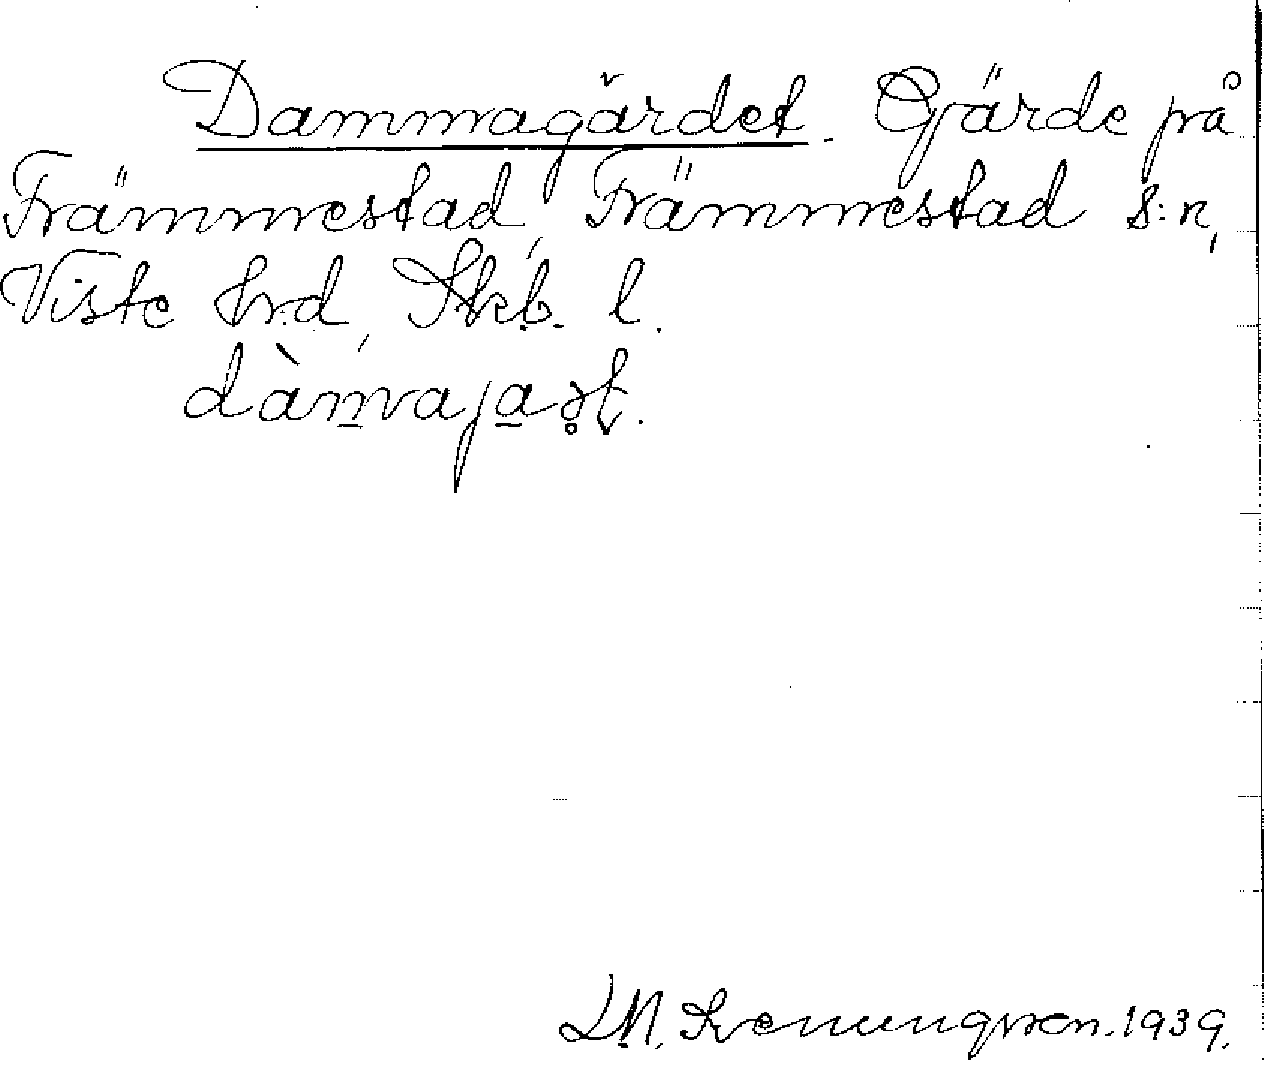 Dammagärdet. Gärde på
Främmestad, Främmestad s:n,
Viste hrd, Skb. l.
L.N. Svenungsson. 1939.